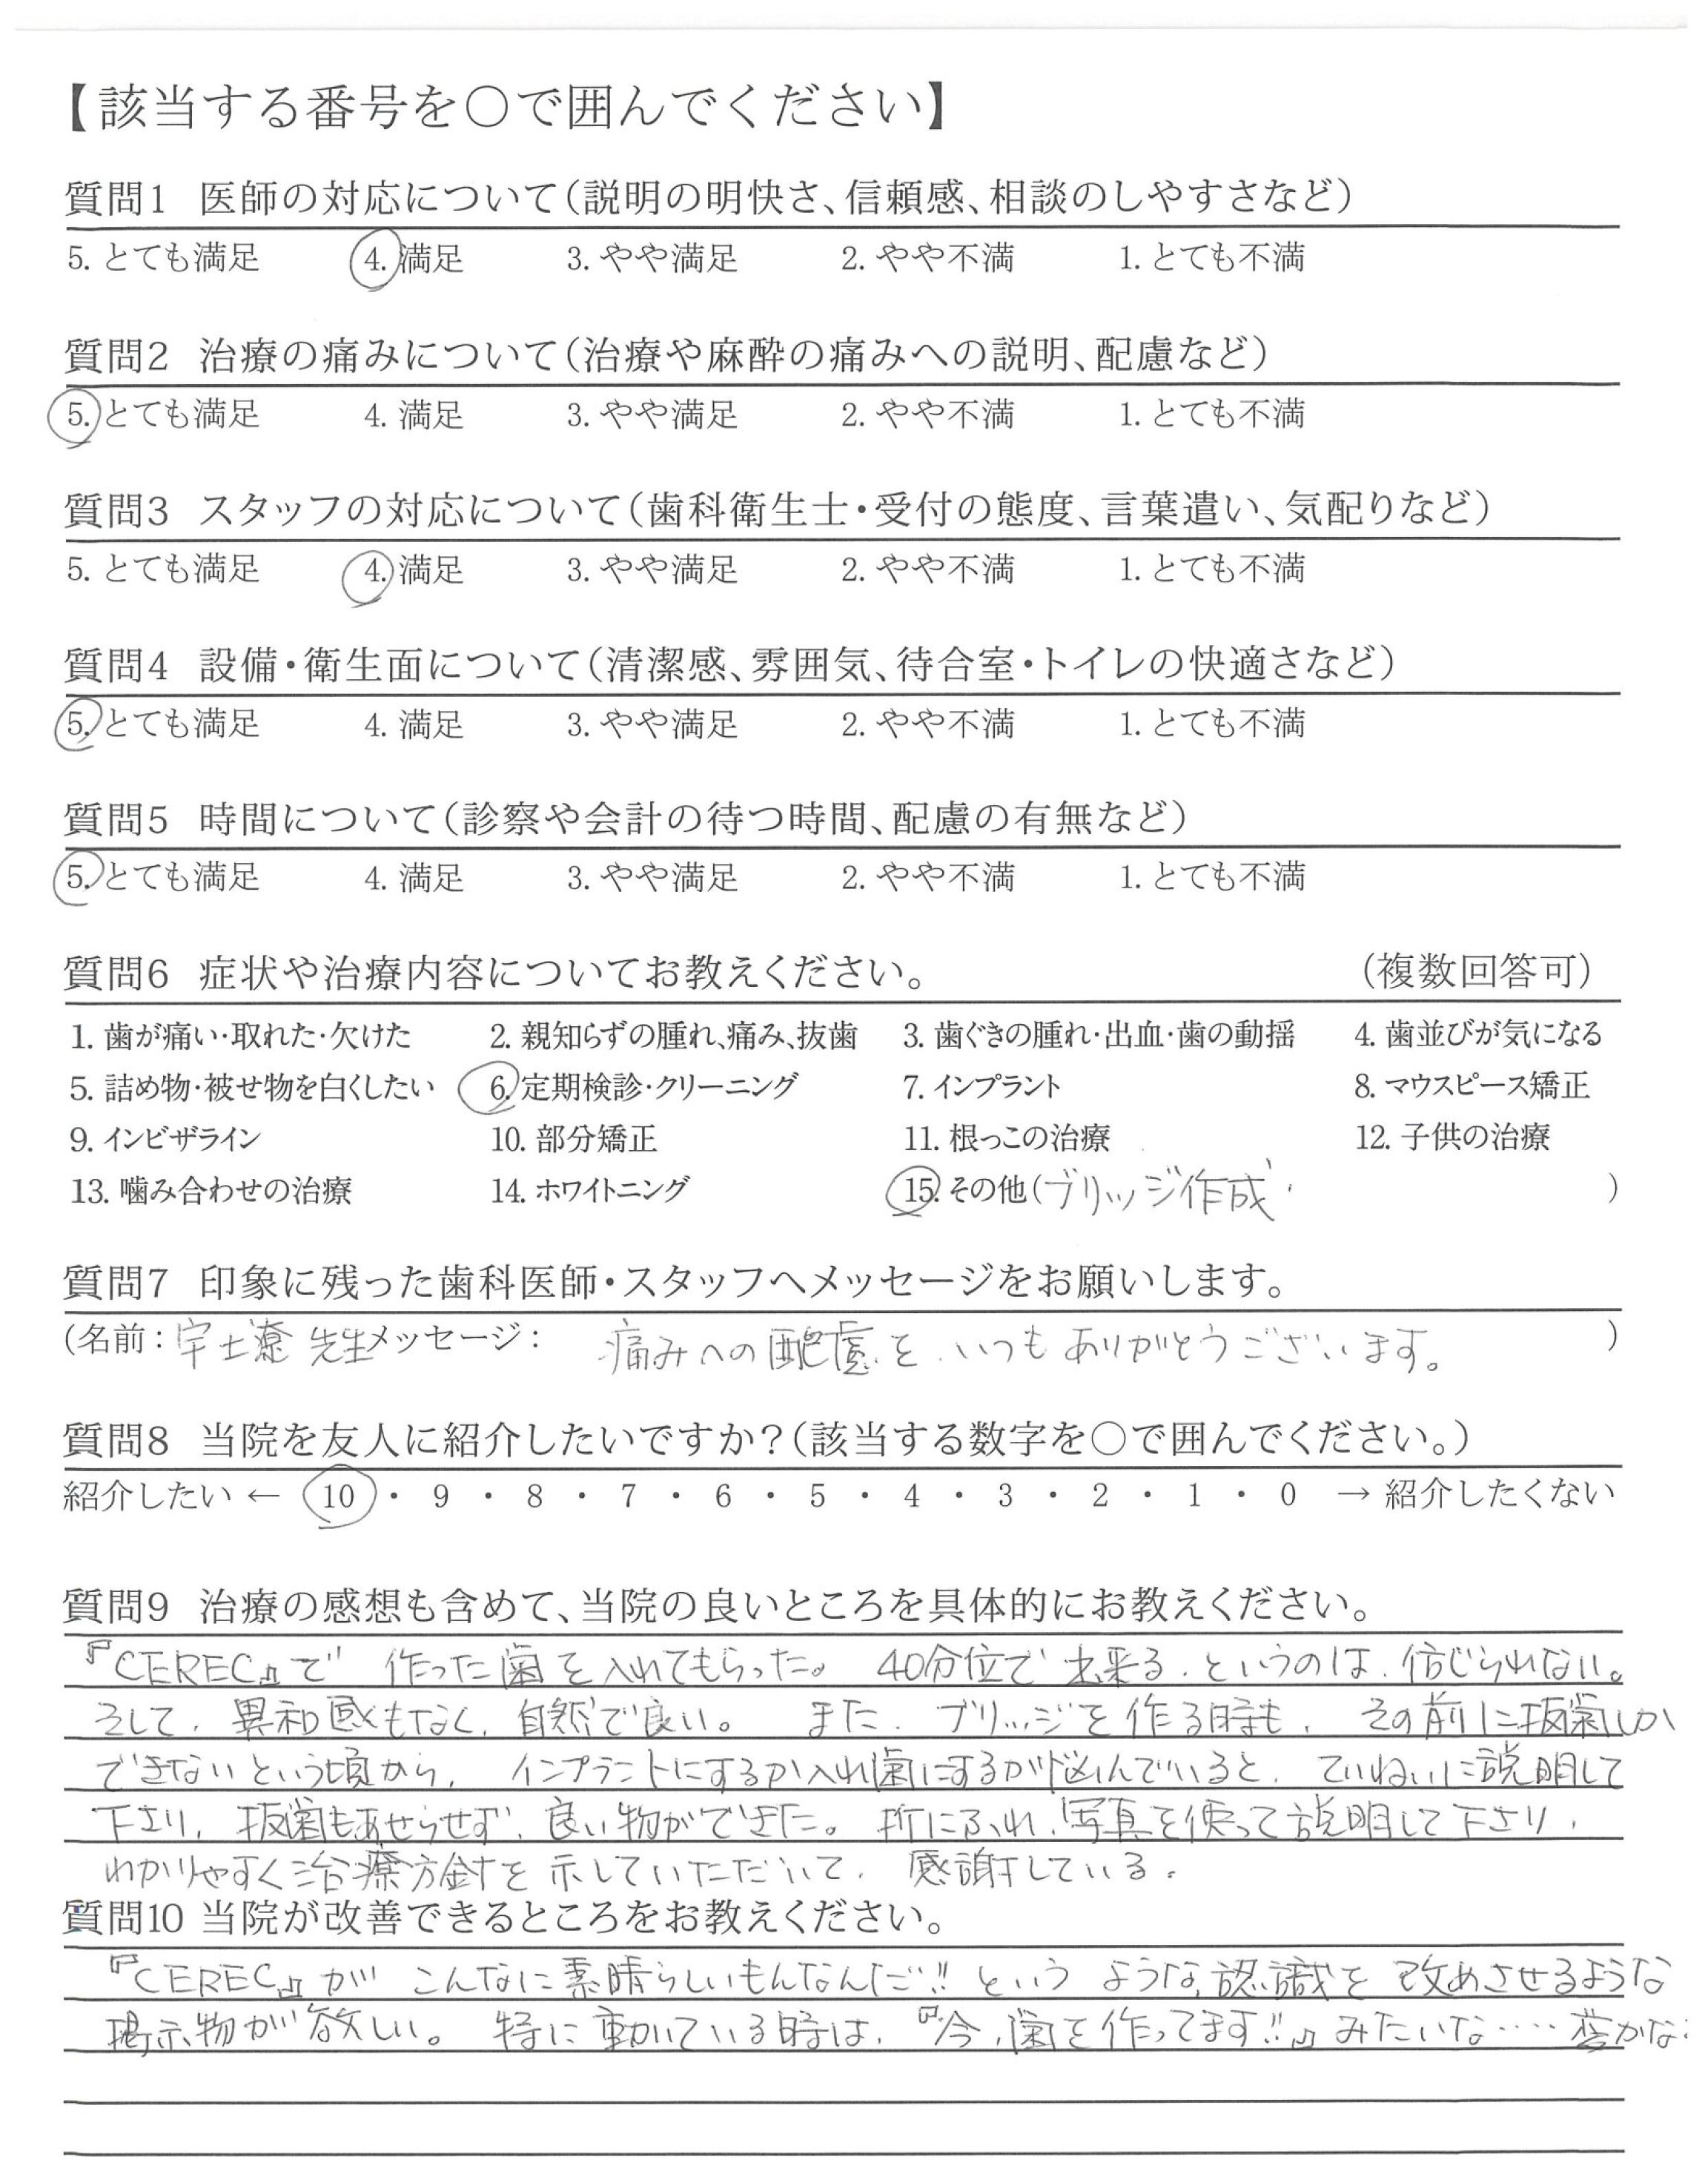 【該当する番号を○で囲んでください】
質問1 医師の対応について(説明の明快さ、信頼感、相談のしやすさなど)
5. とても満足 4. 満足 3. やや満足 2. やや不満 1. とても不満
質問2 治療の痛みについて(治療や麻酔の痛みへの説明、配慮など)
5. とても満足 4. 満足 3. やや満足 2. やや不満 1. とても不満
質問3 スタッフの対応について(歯科衛生士・受付の態度、言葉遣い、気配りなど)
5. とても満足 4. 満足 3. やや満足 2. やや不満 1. とても不満
質問4 設備・衛生面について(清潔感、雰囲気、待合室・トイレの快適さなど)
5. とても満足 4. 満足 3. やや満足 2. やや不満 1. とても不満
質問5 時間について(診察や会計の待つ時間、配慮の有無など)
5. とても満足 4. 満足 3. やや満足 2. やや不満 1. とても不満
質問6 症状や治療内容についてお教えください。 (複数回答可)
1. 歯が痛い・取れた・欠けた 2. 親知らずの腫れ、痛み、抜歯 3. 歯ぐきの腫れ・出血・歯の動揺 4. 歯並びが気になる
5. 詰め物・被せ物を白くしたい 6. 定期検診・クリーニング 7. インプラント 8. マウスピース矯正
9. インビザライン 10. 部分矯正 11. 根っこの治療 12. 子供の治療
13. 噛み合わせの治療 14. ホワイトニング 15. その他(ブリッジ作成 )
質問7 印象に残った歯科医師・スタッフへメッセージをお願いします。
(名前: 先生メッセージ: 痛みへの配慮を、いつもありがとうございます。 )
質問8 当院を友人に紹介したいですか?(該当する数字を○で囲んでください。)
紹介したい ← 10 ・ 9 ・ 8 ・ 7 ・ 6 ・ 5 ・ 4 ・ 3 ・ 2 ・ 1 ・ 0 → 紹介したくない
質問9 治療の感想も含めて、当院の良いところを具体的にお教えください。
『CEREC』で 作った歯を入れてもらった。 40分位で出来る、というのは、信じられない。
そして、異和感もなく、自然で良い。 また、ブリッジを作る時も、その前に抜歯しか
できないという頃から、インプラントにするか入れ歯にするか悩んでいると、ていねいに説明して
下さり、抜歯もあせらせず、良い物ができた。折にふれ、写真を使って説明して下さり、
わかりやすく治療方針を示していただいて、感謝している。
質問10 当院が改善できるところをお教えください。
『CEREC』が こんなに素晴らしいもんなんだ!! という ような認識を改めさせるような
掲示物が欲しい。 特に動いている時は、『今、歯を作ってます!!』みたいな‥‥